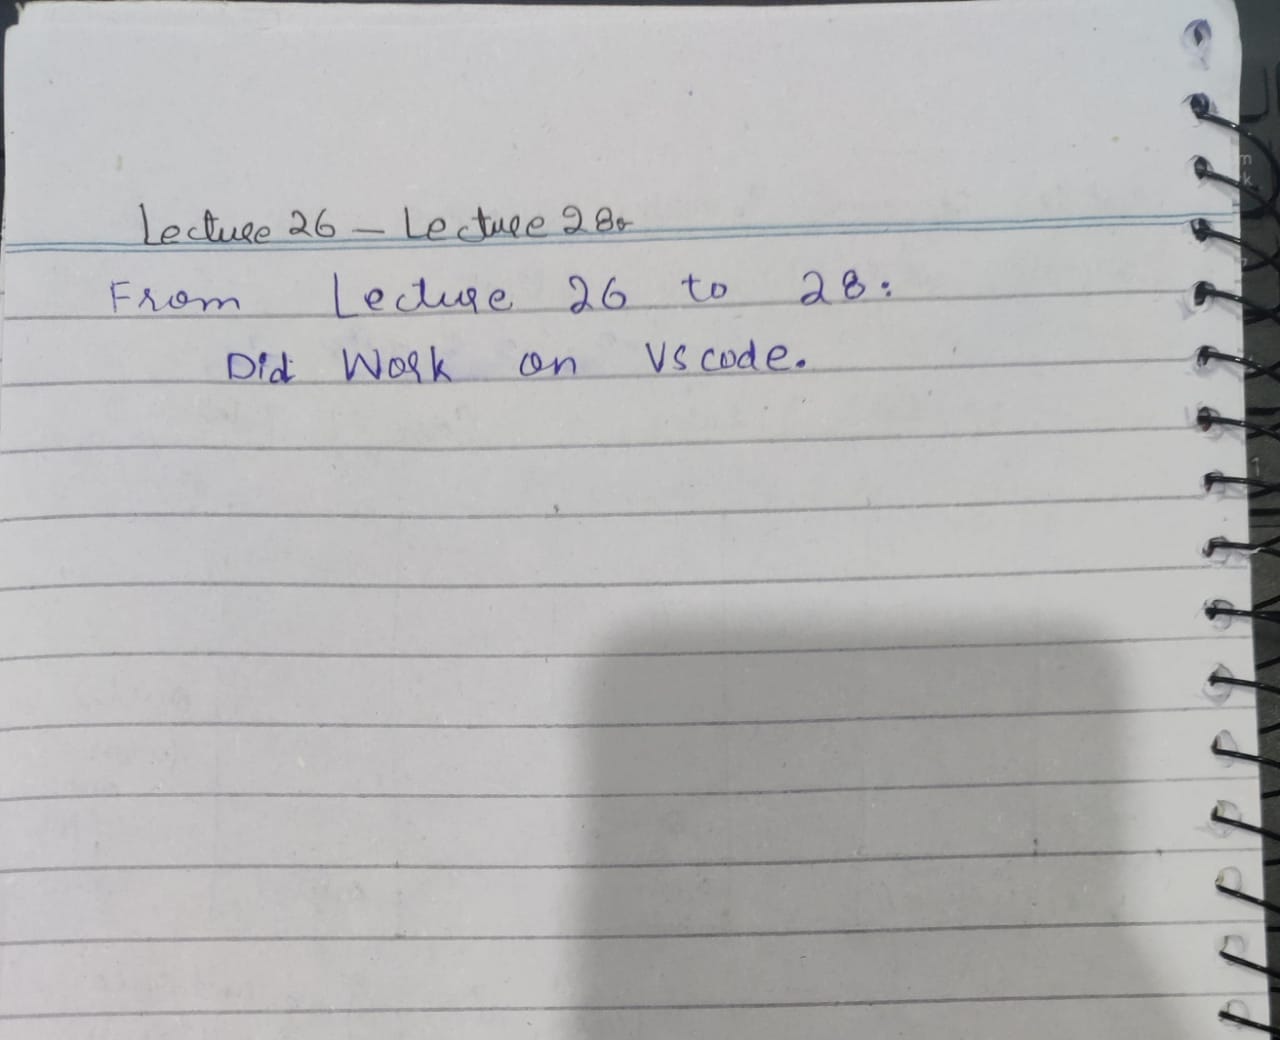 Lecture 26 – Lecture 28:
From Lecture 26 to 28:
Did Work on VS code.